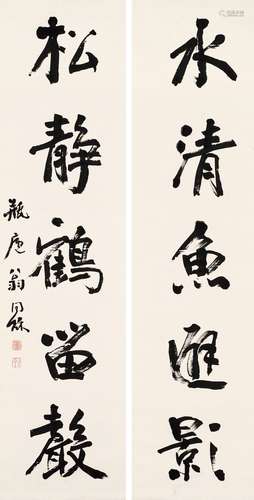 水清魚避影
松静鶴留聲
瓶廬翁同龢